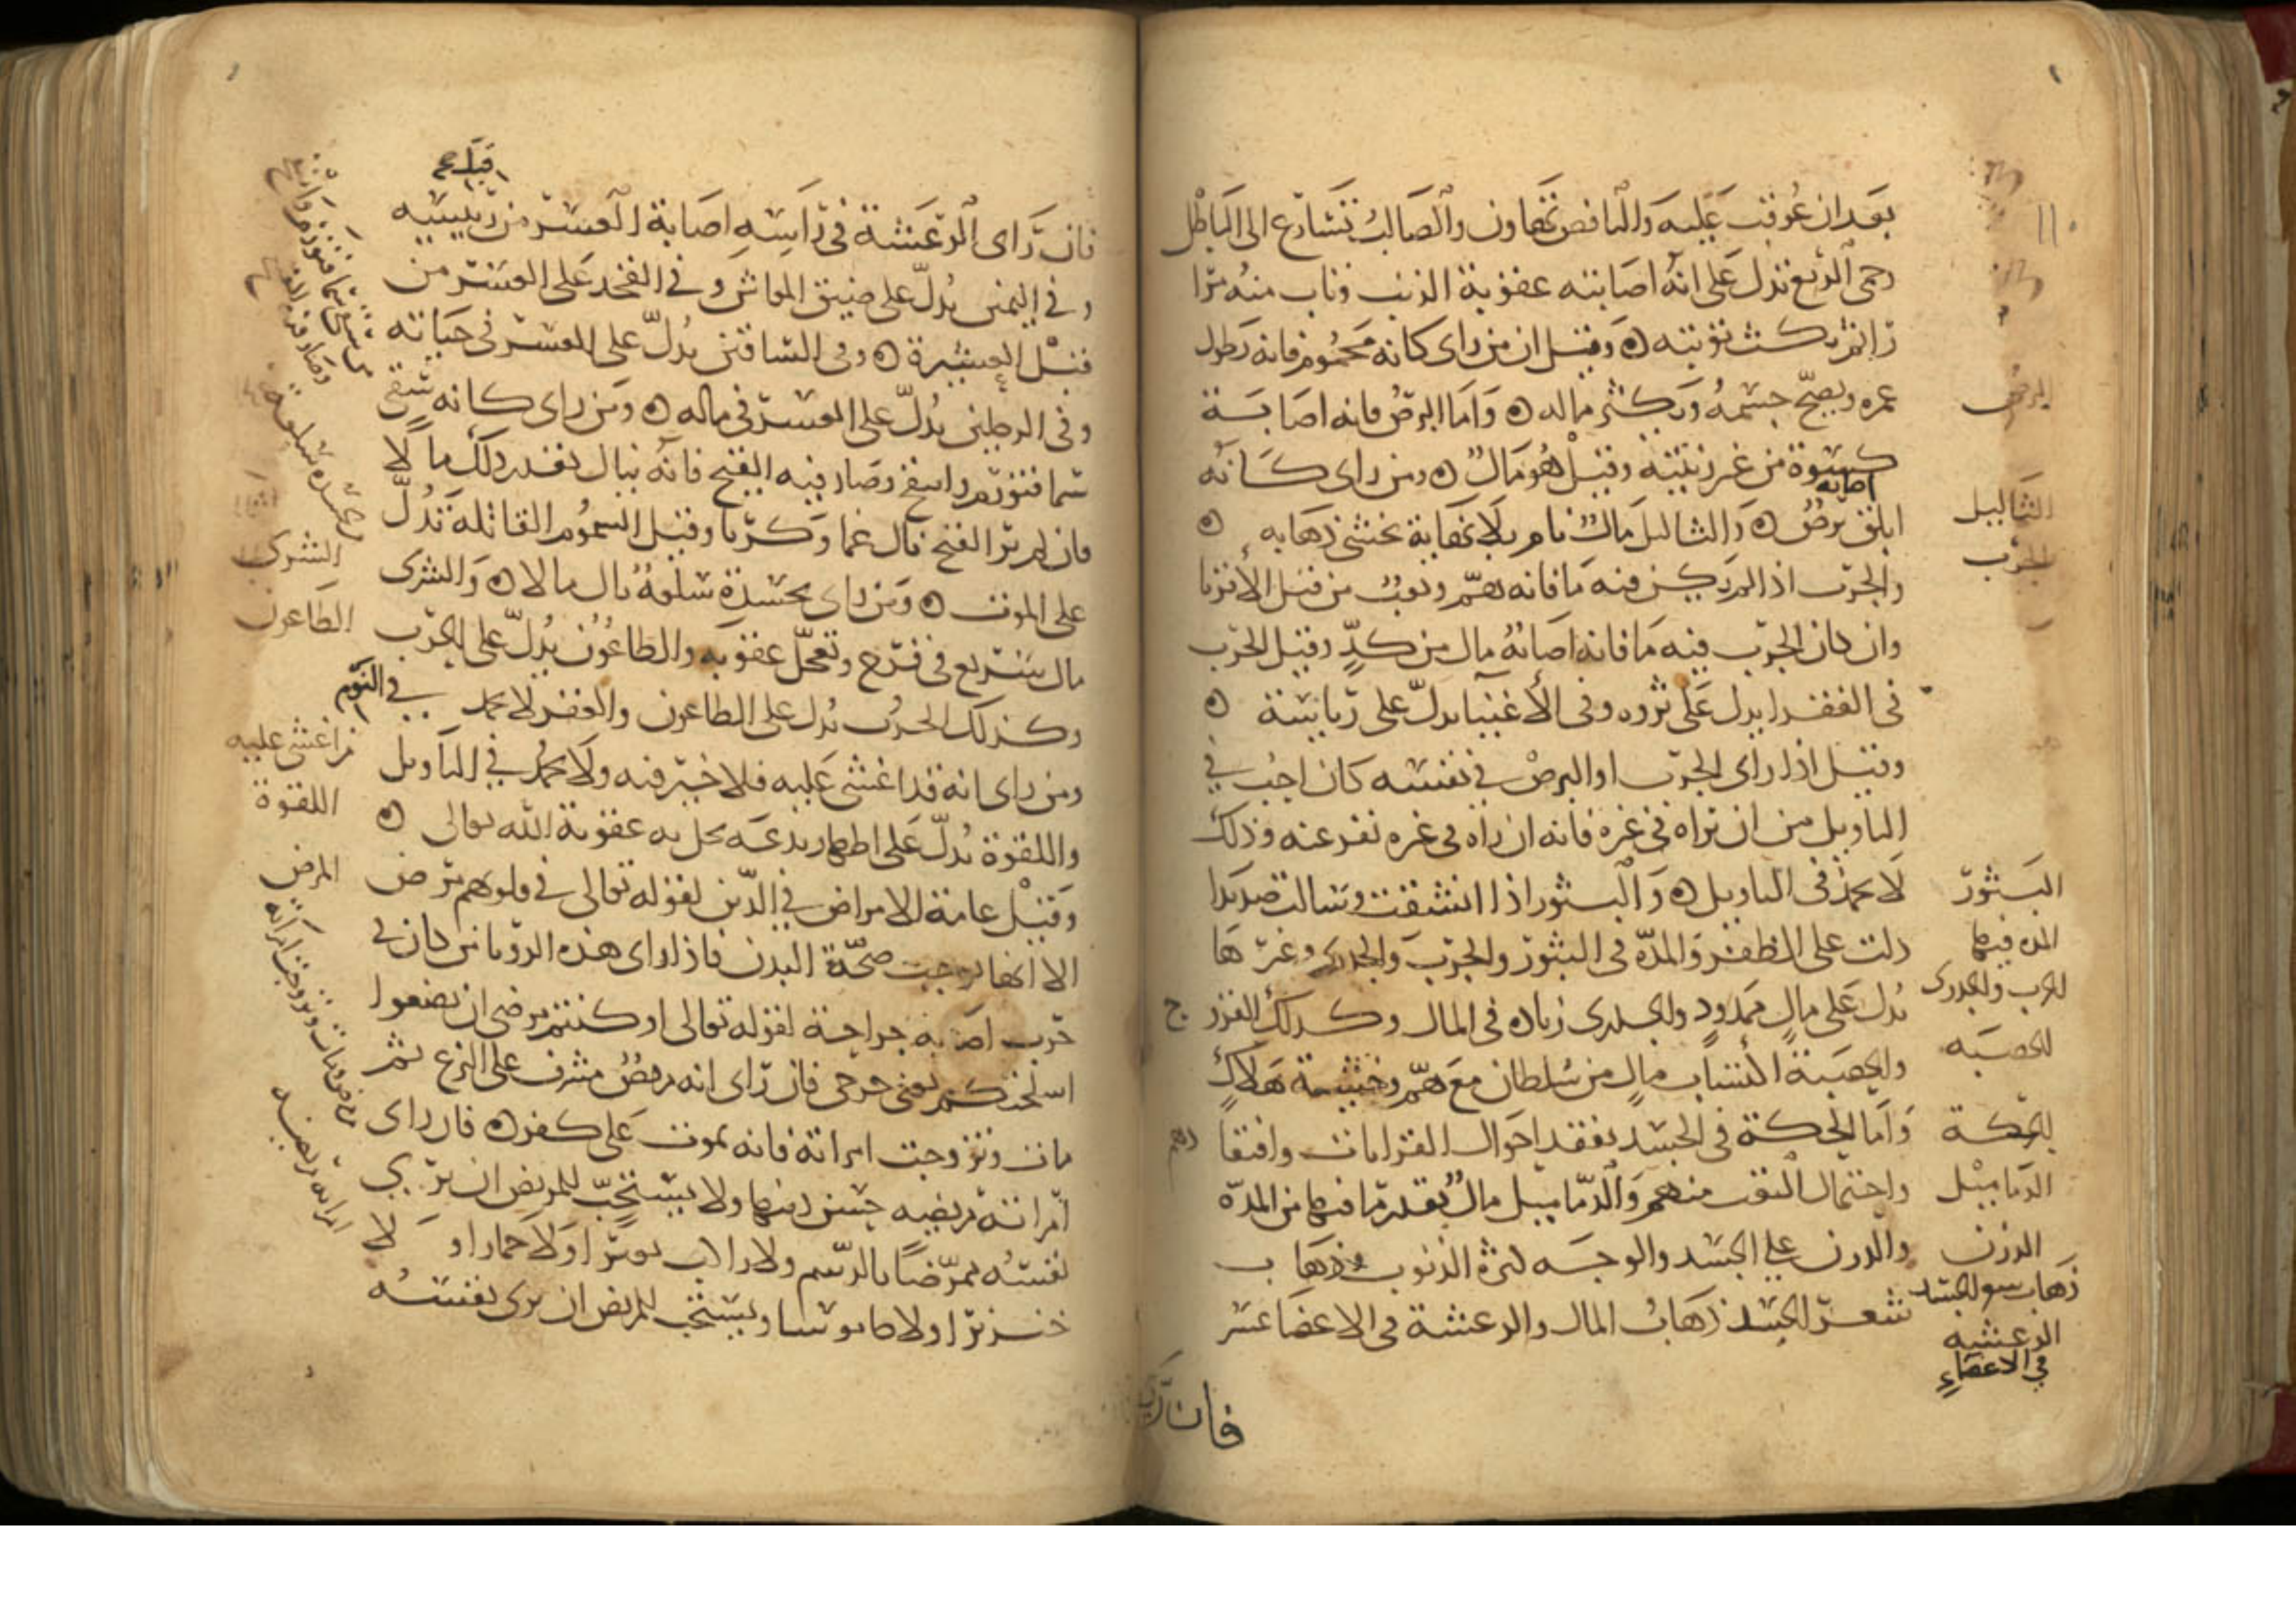 بعد ان عوقب عليه والنافض تهاون والصالب تسارع الى الباطل
وحمى الربع تدل على انه اصابته عقوبة الذنب وتاب منه مرا
را ثم نكث توبته ۞ وقيل ان من راى كانه محموم فانه يطول
عمره ويصح جسمه ويكثر ماله ۞ واما البرص فانه اصابة
كسوة من غير زينة وقيل هو مال ۞ ومن راى كانه
اصابه
ابلق برص ۞ والثاليل مال نام بلا نهاية يخشى ذهابه ۞
والجرب اذا لم يكن فيه ما فانه هم وتعب من قبل الاقربا
وان كان الجرب فيه ما فانه اصابة مال من كد وقيل الجرب
في الفقرا يدل على ثروه وفي الاغنيا يدل على رياسة ۞
وقيل اذا راى الجرب او البرص في نفسه كان احب في
التاويل من ان يراه في غيره فانه ان راه في غيره نفر عنه وذلك
لا يحمد في التاويل ۞ والبثور اذا انشقت وسالت صديدا
دلت على الظفر والمدة في البثور والجرب والجدري وغيرها
تدل على مال ممدود والجدري زيادة في المال وكذلك القروح
والحصبة اكتساب مال من سلطان مع هم وخشية هلاك
واما الحكة في الجسد تفقد احوال القرابات وافتقادهم
واحتمال التعب منهم والدماميل مال بقدر ما فيها من المدة
والدرن على الجسد والوجه كثرة الذنوب وذهاب
شعر الجسد ذهاب المال والرعشة في الاعضا عسر
البرص
الثاليل
الجرب
البثور
المدة فيها
الجرب والجدري
الحصبه
الحكة
الدماميل
الدرن
ذهاب شعر الجسد
الرعشه
في الاعضاء
فان راى
قبل
فان راى الرعشة في راسه اصابة العسر من رييسه
وفي اليمنى يدل على ضيق المعاش وفي الفخذ على العسر من
قبل العشيرة ۞ وفي الساقين يدل على العسر في حياته
وفي الرجلين يدل على العسر في ماله ۞ ومن راى كانه سقي
سما فتورم وانتفخ وصار فيه القيح فانه ينال بقدر ذلك مالا
فان لم ير القيح نال غما وكربا وقيل السموم القاتلة تدل
على الموت ۞ ومن راى بجسده سلعة نال مالا ۞ والشرى
مال سريع في فرح وتعجل عقوبه والطاعون يدل على الحرب
وكذلك الحرب تدل على الطاعون والعقر لا يحمد في النوم
ومن راى انه قد اغشى عليه فلا خير فيه ولا يحمد في التاويل
واللقوة تدل على اظهار بدعه يحل به عقوبة الله تعالى ۞
وقيل عامة الامراض في الدين لقوله تعالى في قلوبهم مرض
الا انها توجب صحة البدن فاذا راى هذه الرويا من كان في
حرب اصابه جراحة لقوله تعالى او كنتم مرضى ان تضعوا
اسلحتكم يعني جرحى فان راى انه مريض مشرف على النزع ثم
مات وتزوجت امراته فانه يموت على كفر ۞ فان راى
امراته مريضه حسن دينها ولا يستحب للمريض ان يرى
نفسه ممرضا بالدسم ولا راكب بعيرا ولا حمارا ولا
خنزيرا ولا جاموسا ويستحب للمريض ان يرى نفسه
الشرى
الطاعون
من اغشى عليه
اللقوة
المرض